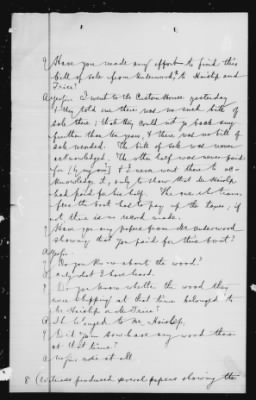 Q Have you made any effort to find this
bill of sale from Underwood, to Heislip and
Price?
A Yes sir I went to the Custom House yesterday
& they told me there was no such bill of
sale there; that they could not go back any
further than ten years, & there was no bill of
sale needed. The bill of sale was never
acknowledged. The other half was never paid
for & I never went there to ac-
knowledge it, only to show that Mr Heislip
had paid for his half. The one it trans
fers the boat had to pay up the taxes; if
it there is no record made.
Q Have you any papers from Mr Underwood
showing that you paid for this boat?
A Yes sir.
Q Do you know about the wood?
A Only what I have heard.
Q Do you know whether the wood they
were shipping at that time belonged to
Mr Heislip or Mr Price?
A It belonged to Mr. Heislip.
Q Did you have any wood there
at that time?
A No sir, none at all.
8 (Witness produced several papers showing the